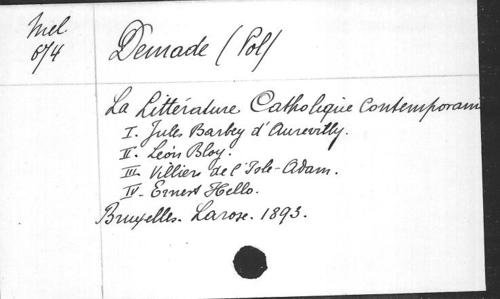 Mel
674
Demade (Pol)
La Littérature Catholique Contemporain
I. Jules Barbey d'Aurevilly.
II. Léon Bloy.
III. Villiers de l'Isle-Adam.
IV. Ernest Hello.
Bruxelles. Larose. 1893.